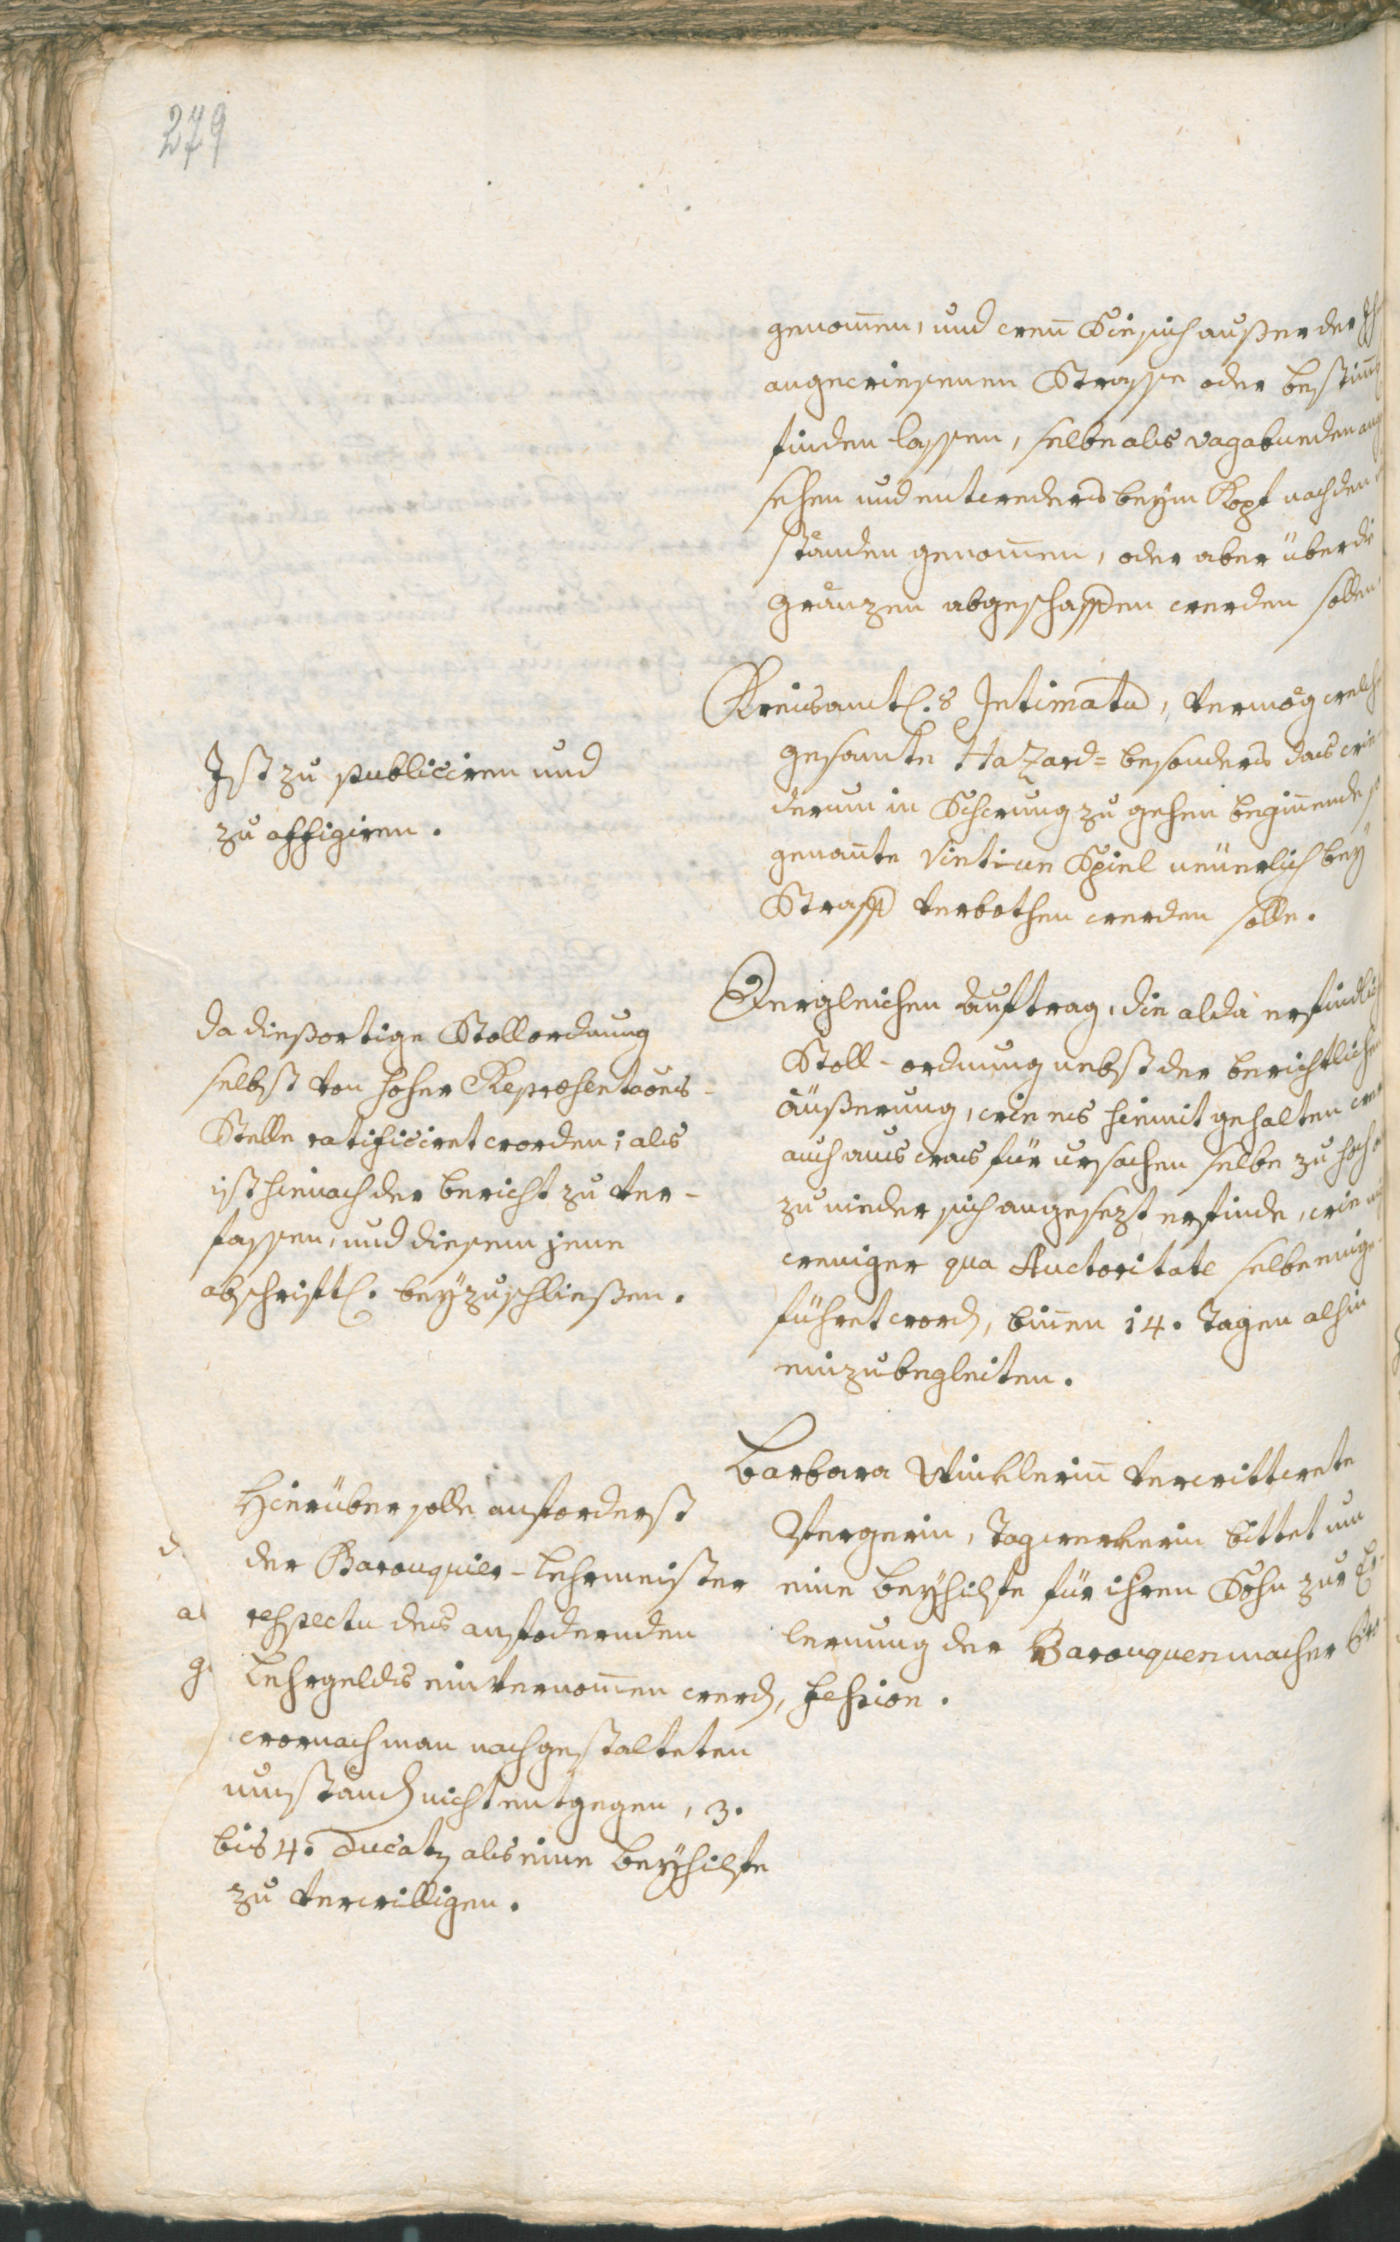 279
genom̅en, und wen̅ Sie sich außer der
angewiesenen Strasse oder bestim̅
finden lassen, selbe als vagabunden ang
sehen und entweders beym Kopf nach den
ständen genom̅en, oder aber über die
gränzen abgeschaffen werden sollen.
Ist zu publiciren und
zu affigiren.
Kreisamtl.s Intimatu, vermög welch
gesamte Hazard= besonders das wie
derum in Schwung zu gehen begin̅ende s
genan̅te Vint-un Spiel neüerlich bey
Straff verbothen werden solle.
da dießortige Stollordnung
selbst von hoher Repræsentaõns-
Stelle ratificiret worden; als
ist hienach der bericht zu ver-
fassen, und diesem jene
abschriftl. beyzuschließen.
Dergleichen Auftrag, die alda erfindlich
Stoll-ordnung nebst der berichtlichen
äüßerung, wie es hiemit gehalten
auch aus was für ursachen selbe zu hoch
zu nieder sich angesezt erfinde, wie
weniger qua Auctoritate selbe einge
führet word, bin̅en 14. Tagen alhin
einzubegleiten.
Hierüber solle anforderst
der Barouquier-Lehrmeister
respectu des anfodernden
Lehrgeldts ein vernom̅en werd,
wornach man nach gestalteten
umständ nicht entgegen, 3.
bis 4. Ducatn als eine beyhilfe
zu verwilligen.
d.
a
g
Barbara Winklerin̅ verwittwete
Bergerin, Tagwerkerin bittet um
eine beyhilfe für ihren Sohn zur Er
lernung der Barouquenmacher Pro
fession.